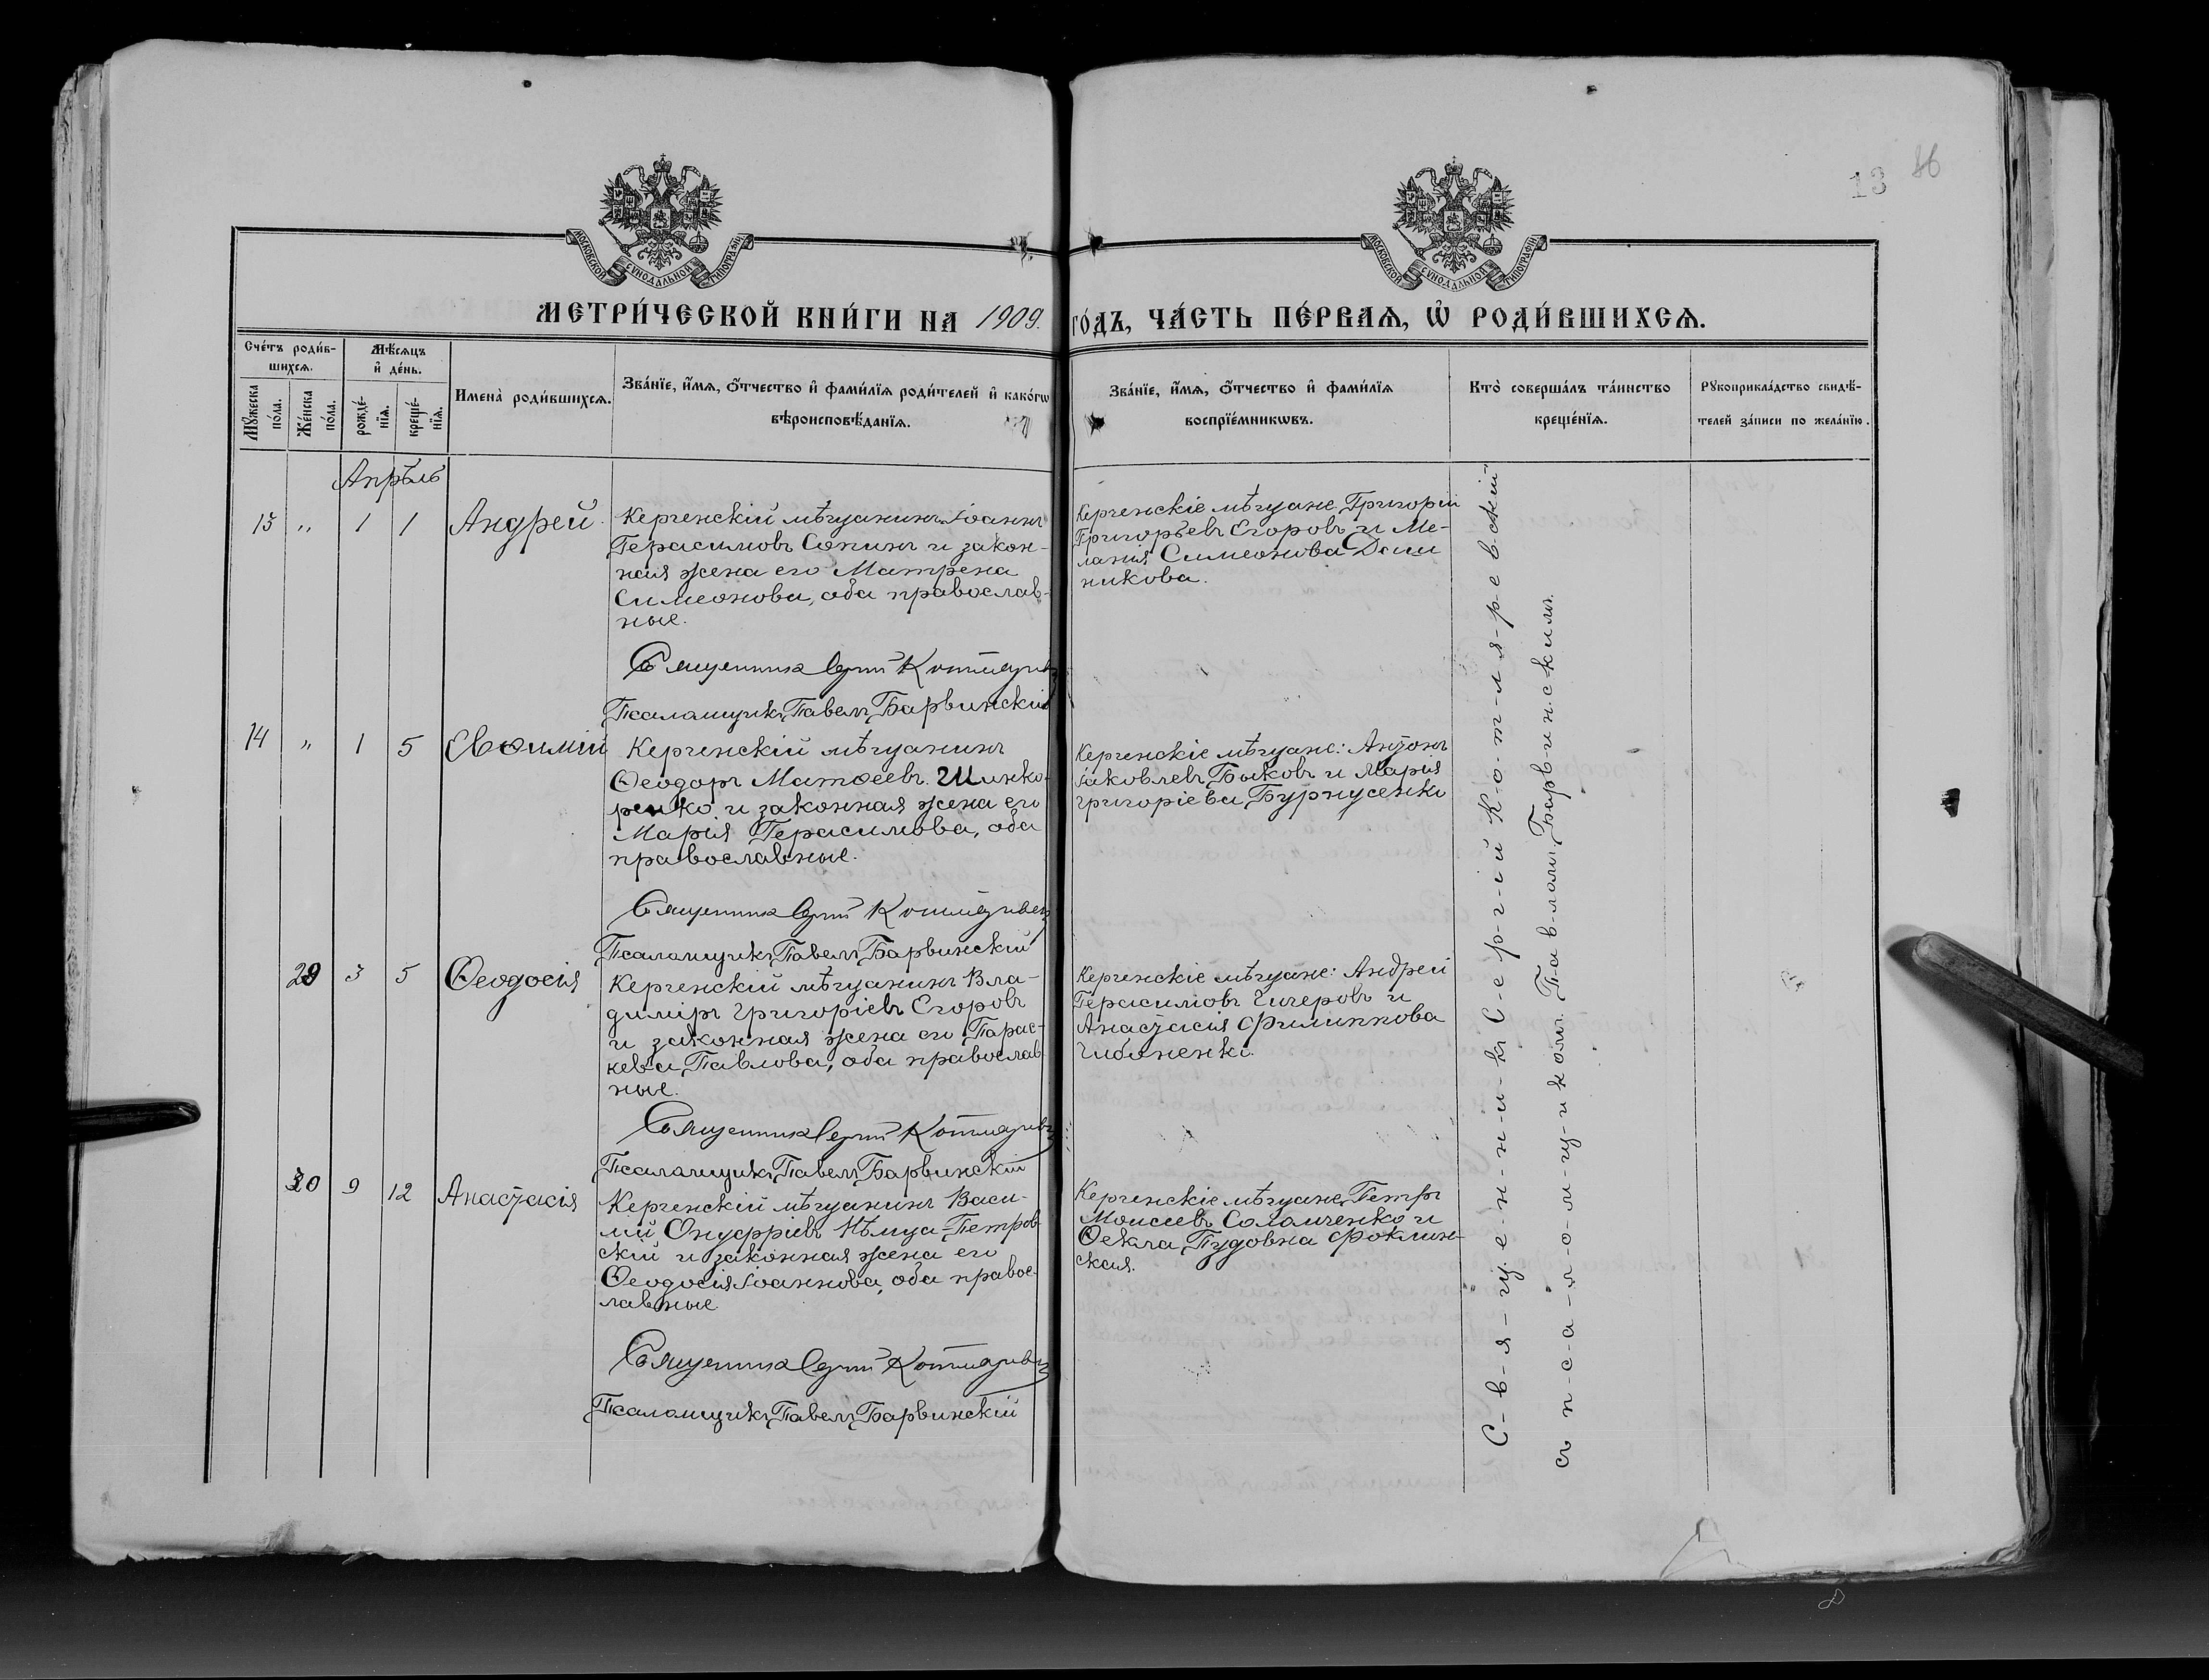 13 86
МОСКОВСКОЙ СѴНОДАЛЬНОЙ ТИПОГРАФІИ
МОСКОВСКОЙ СѴНОДАЛЬНОЙ ТИПОГРАФІИ
МЕТРИ́ЧЕСКОЙ КНИ́ГИ НА 1909. ГО́ДЪ, ЧА́СТЬ ПЕ́РВАѦ, Ѽ РОДИ́ВШИХСѦ.
Сче́тъ роди́в-
шихсѧ.
Мѹжеска по́ла.
Же́нска по́ла.
Мѣ́сѧцъ
и҆ де́нь.
рожде́-
нїѧ.
креще́-
нїѧ.
Имена̀ роди́вшихсѧ.
Зва́нїе, и҆́мѧ, ѻ҆́тчество и҆ фами́лїѧ роди́телей и҆ како́гѡ
вѣроисповѣ́данїѧ.
Зва́нїе, и҆́мѧ, ѻ҆́тчество и҆ фами́лїѧ
воспрїе́мникѡвъ.
Кто̀ соверша́лъ та́инство
креще́нїѧ.
Рѹкоприкла́дство свидѣ́-
телей за́писи по жела́нїю.
Апрѣль
13 „ 1 1 Андрей.
Керченскій мѣщанинъ Іоаннъ
Герасимовъ Сопинъ и закон-
ная жена его Матрена
Симеонова, оба православ-
ные.
Священникъ Сергій Котляревскій
Псаломщикъ Павелъ Барвинскій
Керченскіе мѣщане, Григорій
Григорьевъ Егоровъ и Ме-
ланія Симеонова
никова.
14 „ 1 5 Евѳимій
Керченскій мѣщанинъ
Ѳеодоръ Матѳеевъ Шинко-
ренко и законная жена его
Марія Герасимова, оба
православные.
Священникъ Сергій Котляревскій
Псаломщикъ Павелъ Барвинскій
Керченскіе мѣщане: Антонъ
Іаковлевъ Быковъ и Марія
Григоріева
29 3 5 Ѳеодосія
Керченскій мѣщанинъ Вла-
диміръ Григоріевъ Егоровъ
и законная жена его Парас-
кева Павлова, оба православ-
ные.
Священникъ Сергій Котляревскій
Псаломщикъ Павелъ Барвинскій
Керченскіе мѣщане: Андрей
Герасимовъ Чичеровъ и
Анастасія Филиппова
30 9 12 Анастасія
Керченскій мѣщанинъ Васи-
лій Онуфріевъ Нѣмуа-Петров-
скій и законная жена его
Ѳеодосія Іоаннова, оба правос-
лавные.
Священникъ Сергій Котляревскій
Псаломщикъ Павелъ Барвинскій
Керченскіе мѣщане, Петръ
Моисеевъ Соломченко и
Ѳекла Пудовна Фоклин-
ская.
С-в-я-щ-е-н-н-и-къ С-е-р-г-і-й К-о-т-л-я-р-е-в-с-кій
съ п-с-а-л-о-м-щ-и-комъ Па-в-ломъ Бар-в-и-н-с-кимъ.